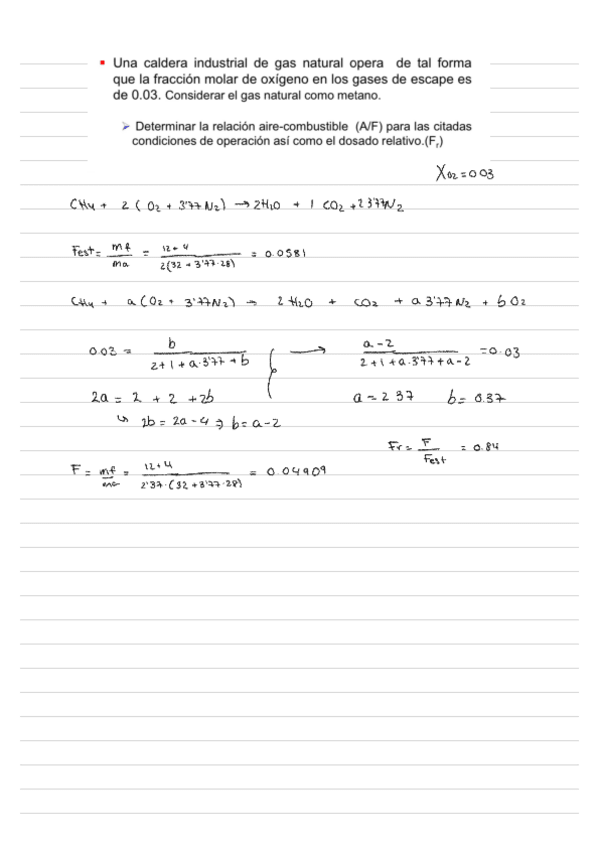 ▪ Una caldera industrial de gas natural opera de tal forma
que la fracción molar de oxígeno en los gases de escape es
de 0.03. Considerar el gas natural como metano.
➢ Determinar la relación aire-combustible (A/F) para las citadas
condiciones de operación así como el dosado relativo.(Fr)
XO2 = 0.03
CH4 + 2 ( O2 + 3'77 N2) → 2H2O + 1 CO2 + 2 3'77N2
Fest = mf/ma = 12+4 / 2(32 + 3'77·28) = 0.0581
CH4 + a(O2 + 3'77N2) → 2 H2O + CO2 + a 3'77 N2 + b O2
0.03 = b / 2+1+a·3'77+b → a-2 / 2+1+a·3'77+a-2 = 0.03
2a = 2 + 2 + 2b a = 2 37 b = 0.37
↳ 2b = 2a-4 ⇒ b = a-2
Fr = F/Fest = 0.84
F = mf/ma = 12+4 / 2'37·(32+3'77·28) = 0.04909